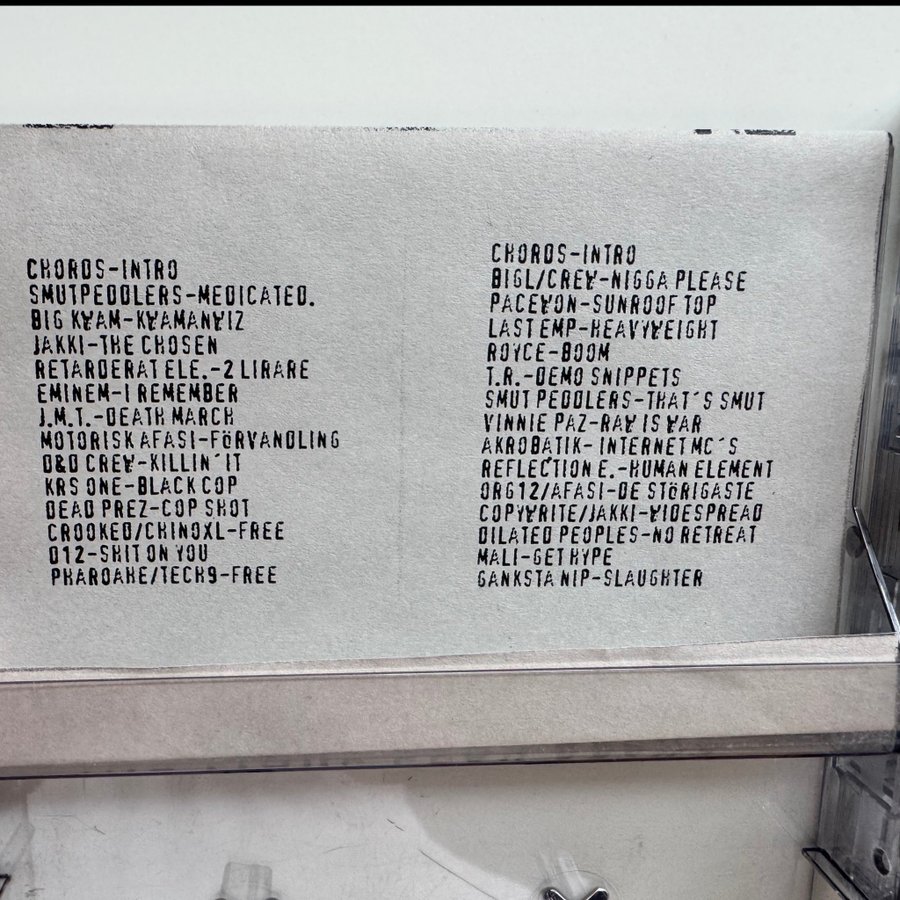 CHORDS-INTRO
SMUTPEDDLERS-MEDICATED.
BIG KWAM-KWAMANWIZ
JAKKI-THE CHOSEN
RETARDERAT ELE.-2 LIRARE
EMINEM-I REMEMBER
J.M.T.-DEATH MARCH
MOTORISK AFASI-FÖRVANDLING
D&D CREW-KILLIN´IT
KRS ONE-BLACK COP
DEAD PREZ-COP SHOT
CROOKED/CHINOXL-FREE
D12-SHIT ON YOU
PHAROAHE/TECH9-FREE
CHORDS-INTRO
BIGL/CREW-NIGGA PLEASE
PACEWON-SUNROOF TOP
LAST EMP-HEAVYWEIGHT
ROYCE-BOOM
T.R.-DEMO SNIPPETS
SMUT PEDDLERS-THAT´S SMUT
VINNIE PAZ-RAW IS WAR
AKROBATIK- INTERNET MC´S
REFLECTION E.-HUMAN ELEMENT
ORG12/AFASI-DE STÖRIGASTE
COPYWRITE/JAKKI-WIDESPREAD
DILATED PEOPLES-NO RETREAT
MALI-GET HYPE
GANKSTA NIP-SLAUGHTER